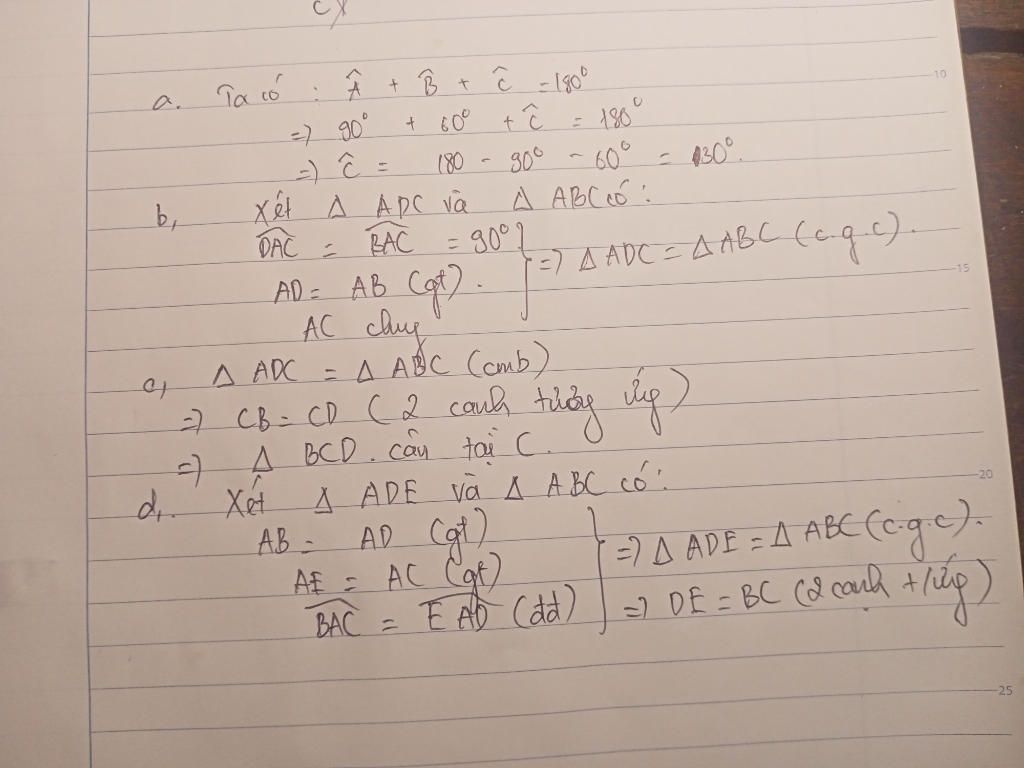 a. Ta có : Â + B̂ + Ĉ = 180⁰
=> 90⁰ + 60⁰ + Ĉ = 180⁰
=> Ĉ = 180 - 90⁰ - 60⁰ = 30⁰.
b, Xét Δ ADC và Δ ABC có :
DAC = BAC = 90⁰
AD = AB (gt).
AC chung
} => Δ ADC = Δ ABC (c.g.c).
c, Δ ADC = Δ ABC (cmb)
=> CB = CD (2 canh tương ứng)
=> Δ BCD cân tại C.
d, Xét Δ ADE và Δ ABC có :
AB = AD (gt)
AE = AC (gt)
BAC = EAD (dd)
} => Δ ADE = Δ ABC (c.g.c).
=> DE = BC (2 canh t/ứng)
10
15
20
25